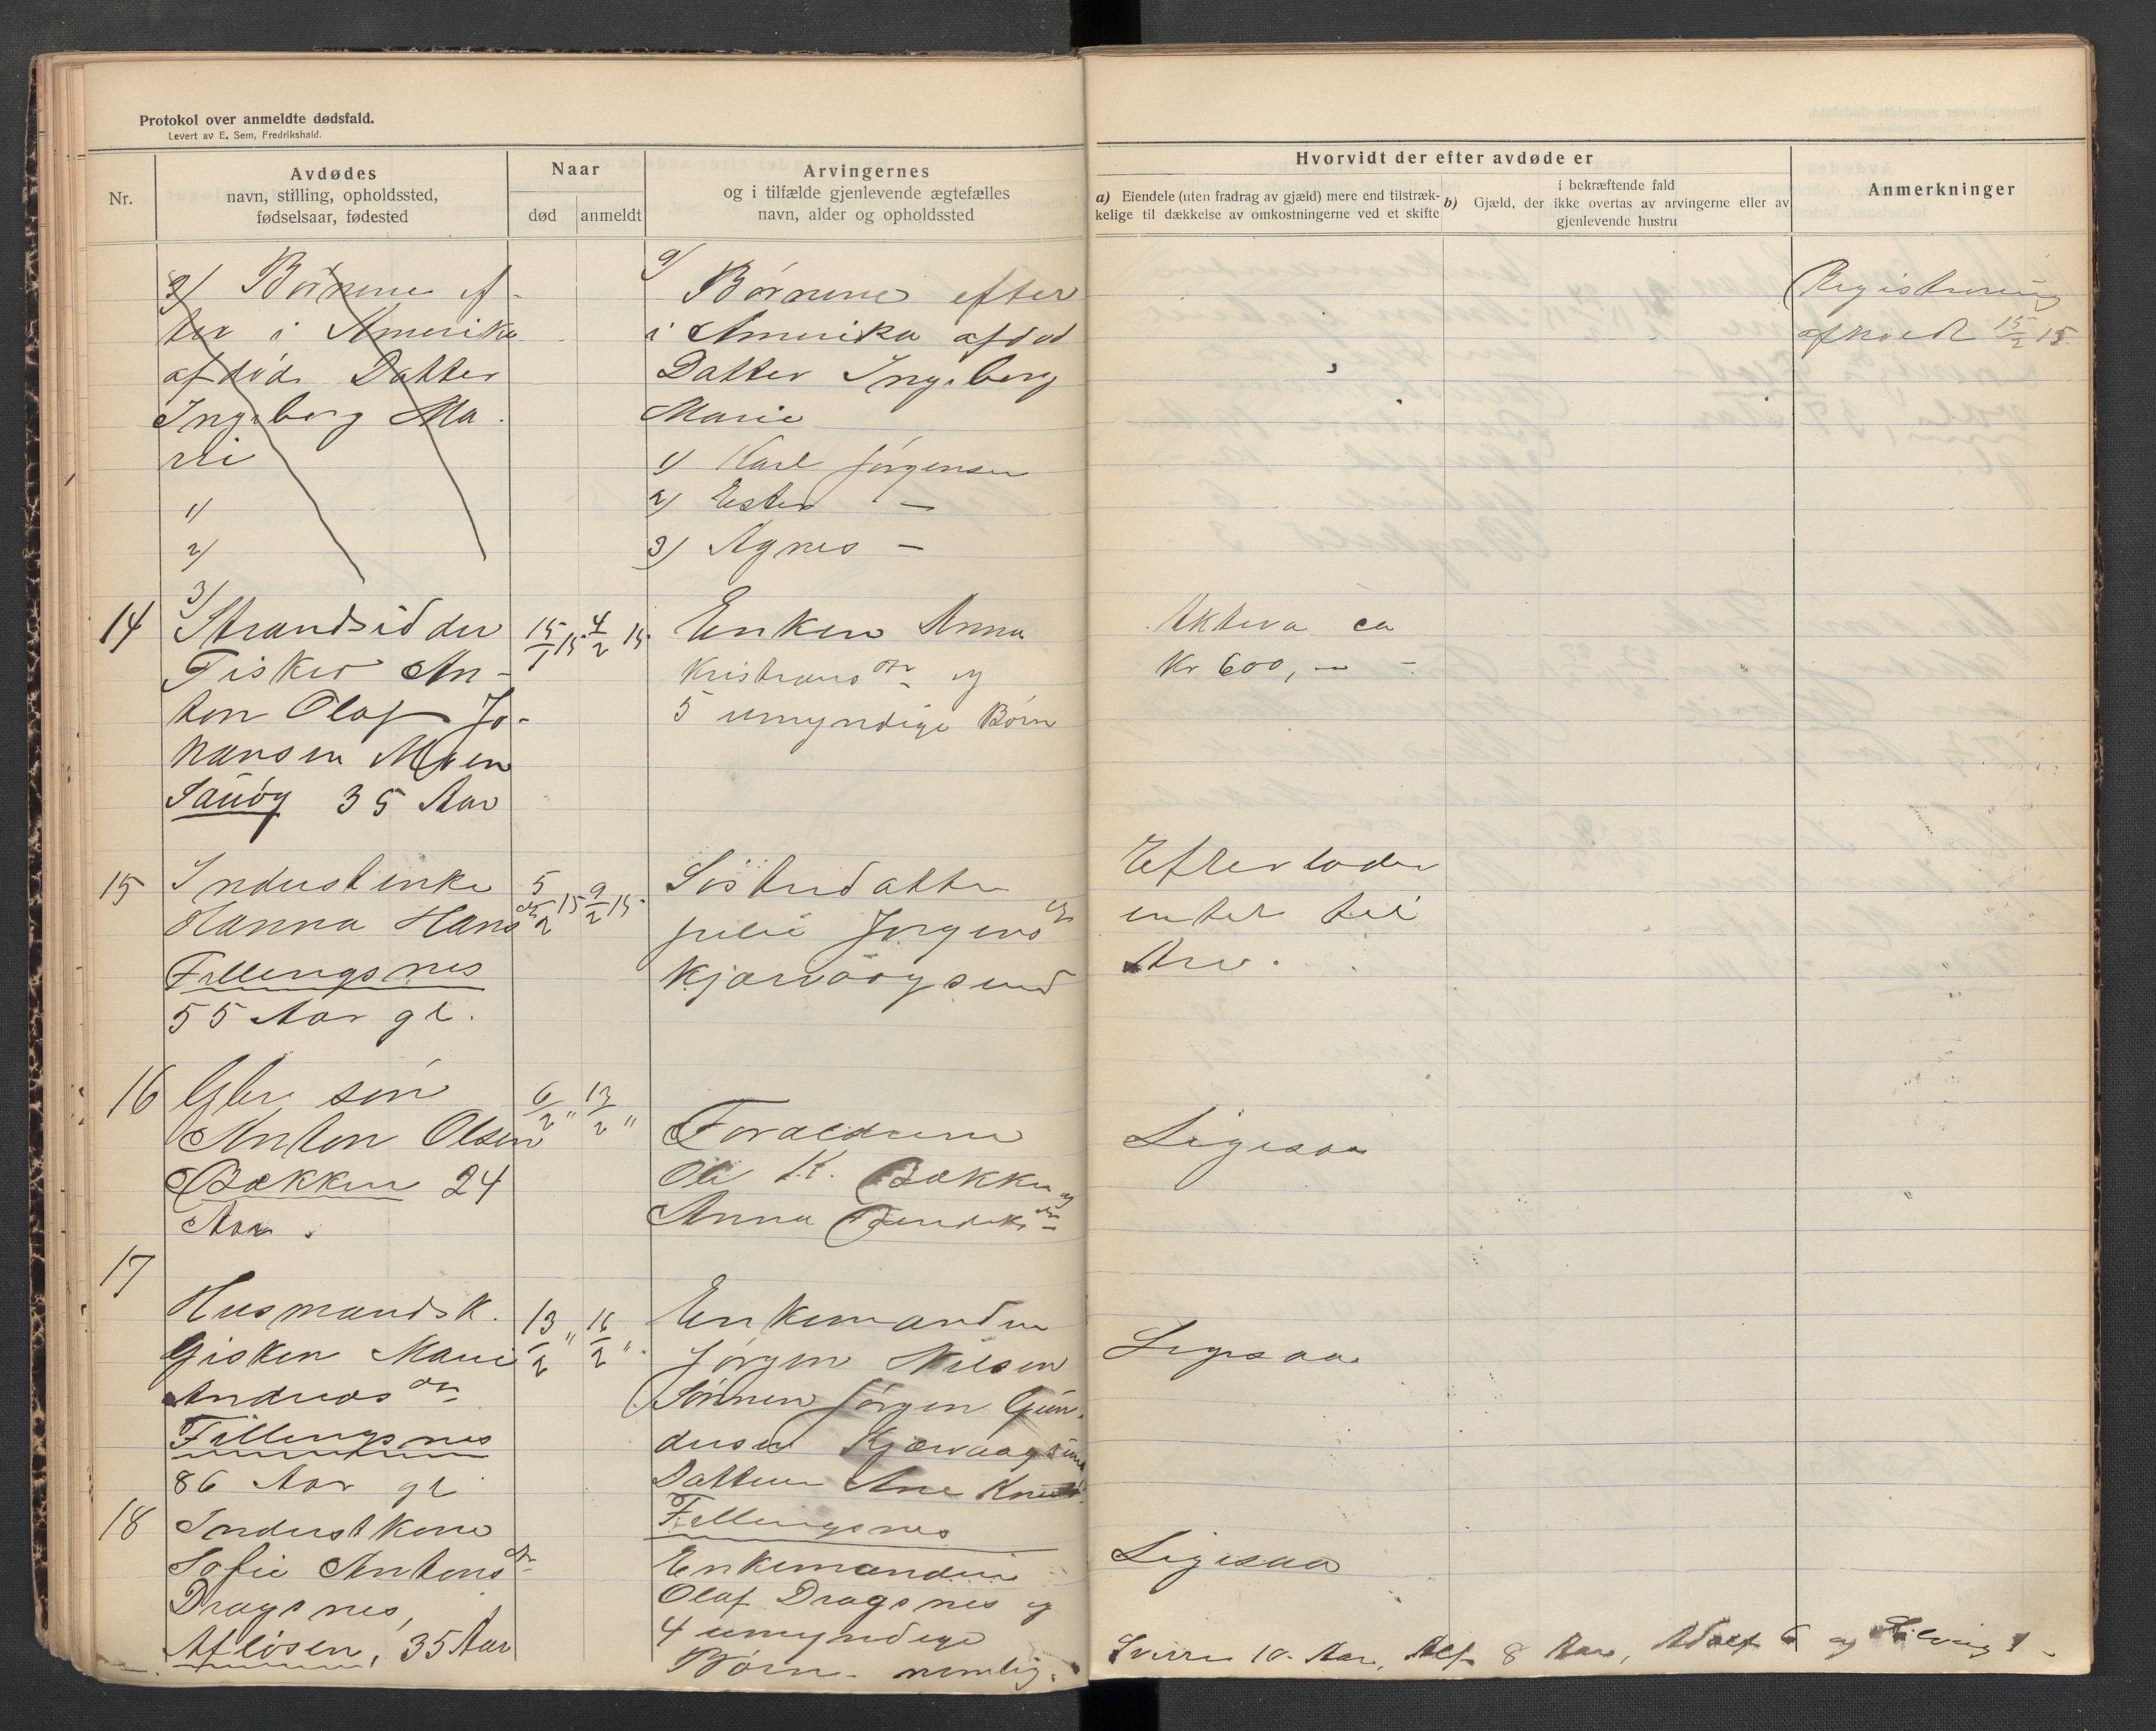 Protokol over anmeldte dødsfald.
Levert av E. Sem, Fredrikshald.
Nr.
Avdødes
navn, stilling, opholdssted,
fødselsaar, fødested
Naar
død
anmeldt
Arvingernes
og i tilfælde gjenlevende ægtefælles
navn, alder og opholdssted
Hvorvidt der efter avdøde er
a) Eiendele (uten fradrag av gjæld) mere end tilstræk-
kelige til dækkelse av omkostningerne ved et skifte
i bekræftende fald
b) Gjæld, der ikke overtas av arvingerne eller av
gjenlevende hustru
Anmerkninger
9/ Børnene ef-
ter i Amerika
afdøde Datter
Ingeborg Ma-
rie
1/
2/
3/
9/
Børnene efter
i Amerika afdød
Datter Ingeborg
Marie
1/ Karl Jørgensen
2/ Ester —
3/ Agnes —
Registrering
afholdt 15/2 15.
14
Strandsidder
Fisker An-
ton Olaf Jo-
hansen Moen
35 Aar
15/1 15. 4/2 15.
Enken Anna
Kristiansdtr og
5 umyndige Børn
Aktiva ca
Kr 600,—
15
Inderstenke
Hanna Hansdtr
Fillingsnes
55 Aar gl.
5/2 15 9/2 15.
Søsterdatter
Julie Jørgensdtr
Kjærvaagsund
Efterlader
intet til
Arv.
16
Gbr. søn
Anton Olsen
Bakken 24
Aar.
6/2 " 13/2 "
Forældrene
Ole K. Bakken og
Anna
Ligesaa
17
Husmandsk.
Gisken Marie
Andreasdtr
Fillingsnes
86 Aar gl
13/2 " 16/2 "
Enkemanden
Jørgen Nilsen
Sønnen Jørgen Gun-
dersen Kjærvaagsund
Datteren Ane
Fillingsnes
Ligesaa
18
Inderstkone
Sofie Antonsdtr
Dragsnes,
35 Aar
Enkemanden
Olaf Dragsnes og
4 umyndige
Børn nemlig:
Ligesaa
Sverre 10 Aar, Alf 8 Aar, Adolf 6 og